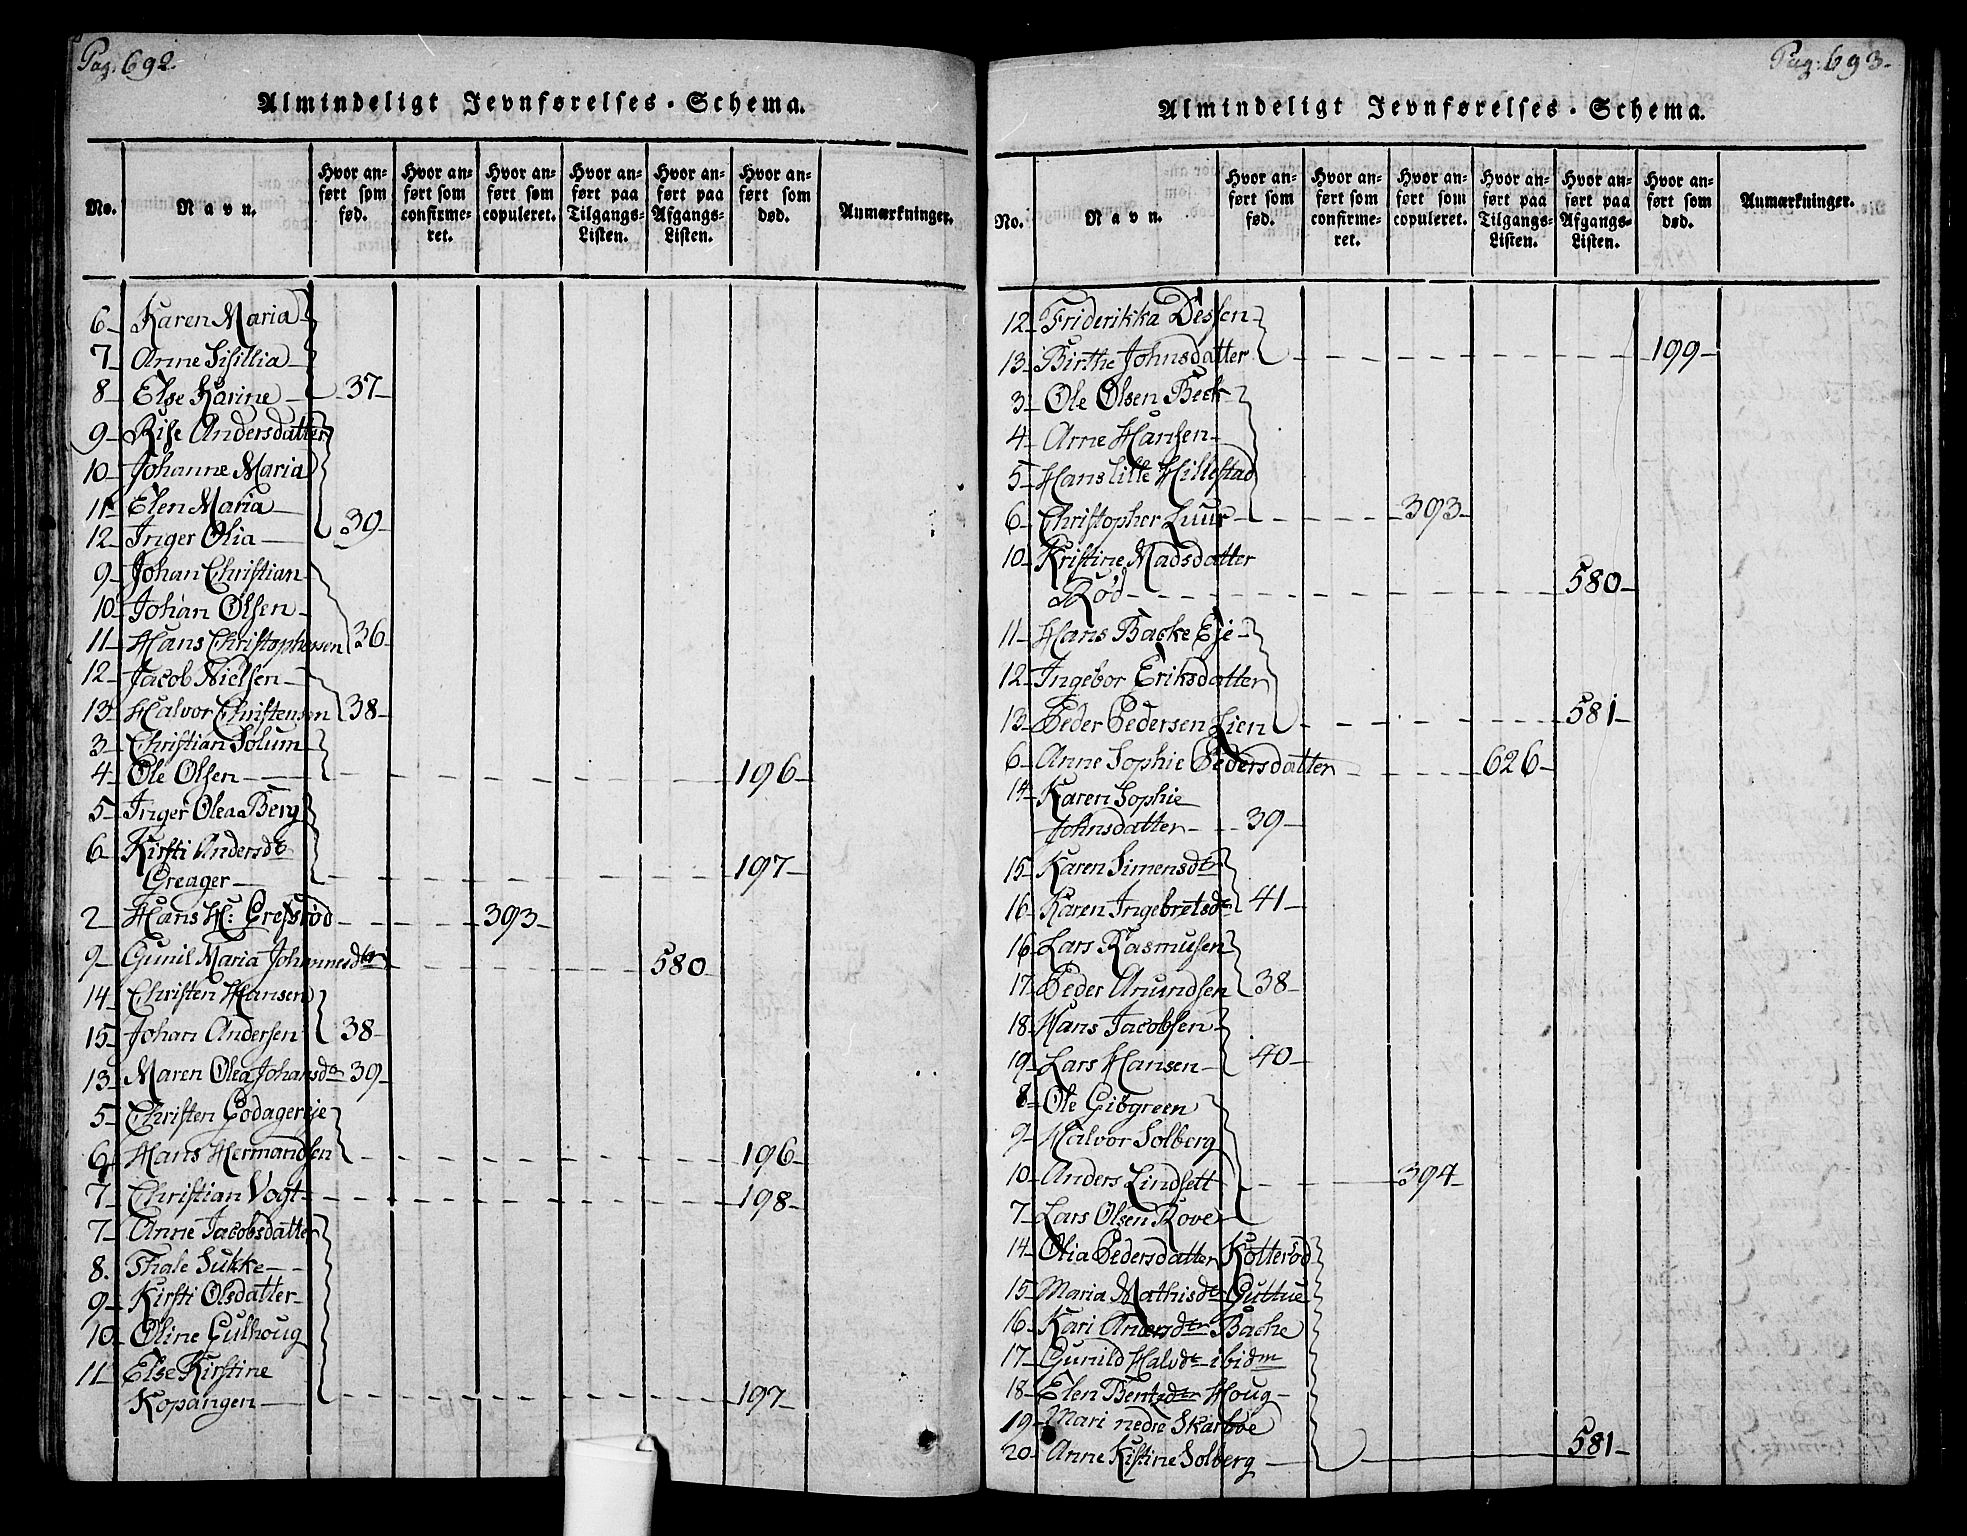 Pag: 692.
Almindeligt Jevnførelses-Schema.
No. Navn. Hvor anført som fød. Hvor anført som confirmeret. Hvor anført som copuleret. Hvor anført paa Tilgangs-Listen. Hvor anført paa Afgangs-Listen. Hvor anført som død. Anmærkninger.
6 Karen Maria
7 Anne Sisillia
8 Else Karine 37
9 Rise Andersdatter
10 Johanne Maria
11 Elen Maria
12 Inger Olia 39
9 Johan Christian
10 Johan Olsen
11 Hans Christophersen 36
12 Jacob Nielsen
13 Halvor Christensen 38
3 Christian Solum
4 Ole Olsen 196
5 Inger Olea Berg
6 Kirsti Andersdtr
Greager 197
2 Hans H: Gresrød 393
9 Gunil Maria Johannesdtr 580
14 Christen Hansen
15 Johan Andersen 38
13 Maren Olea Johansdtr 39
5 Christen Godagereje
6 Hans Hermandsen 196
7 Christian Vogt 198
7 Anne Jacobsdatter
8. Thale Sukke
9 Kirsti Olsdatter
10 Oline Gulhoug
11 Else Kirstine
Kopangen 197
Pag: 693.
Almindeligt Jevnførelses-Schema.
No. Navn. Hvor anført som fød. Hvor anført som confirmeret. Hvor anført som copuleret. Hvor anført paa Tilgangs-Listen. Hvor anført paa Afgangs-Listen. Hvor anført som død. Anmærkninger.
12 Friderikka Dessen
13 Birthe Johnsdatter 199
3 Ole Olsen Beck
4 Arne Hansen
5 Hans lille Hillestad
6 Christopher Luur 393
10 Kristine Madsdatter
Rød 580
11 Hans Backe Eje
12 Ingebor Eriksdatter
13 Peder Pedersen Lien 581
6 Anne Sophie Pedersdatter 626
14 Karen Sophie
Johnsdatter 39
15 Karen Simensdtr
16 Karen Ingebretsdtr 41
16 Lars Rasmusen
17 Peder Amundsen 38
18 Hans Jacobsen
19 Lars Hansen 40
8 Ole Gibgreen
9 Halvor Solberg
10 Anders Lindsett 394
7 Lars Olsen Rove
14 Olia Pedersdatter Kolterød
15 Maria Mathisdtr Guttue
16 Kari Andersdtr Bache
17 Gunild Halvdtr ibidm
18 Elen Bentsdtr Houg
19 Mari nedre Skarbve
20 Anne Kistine Solberg 581